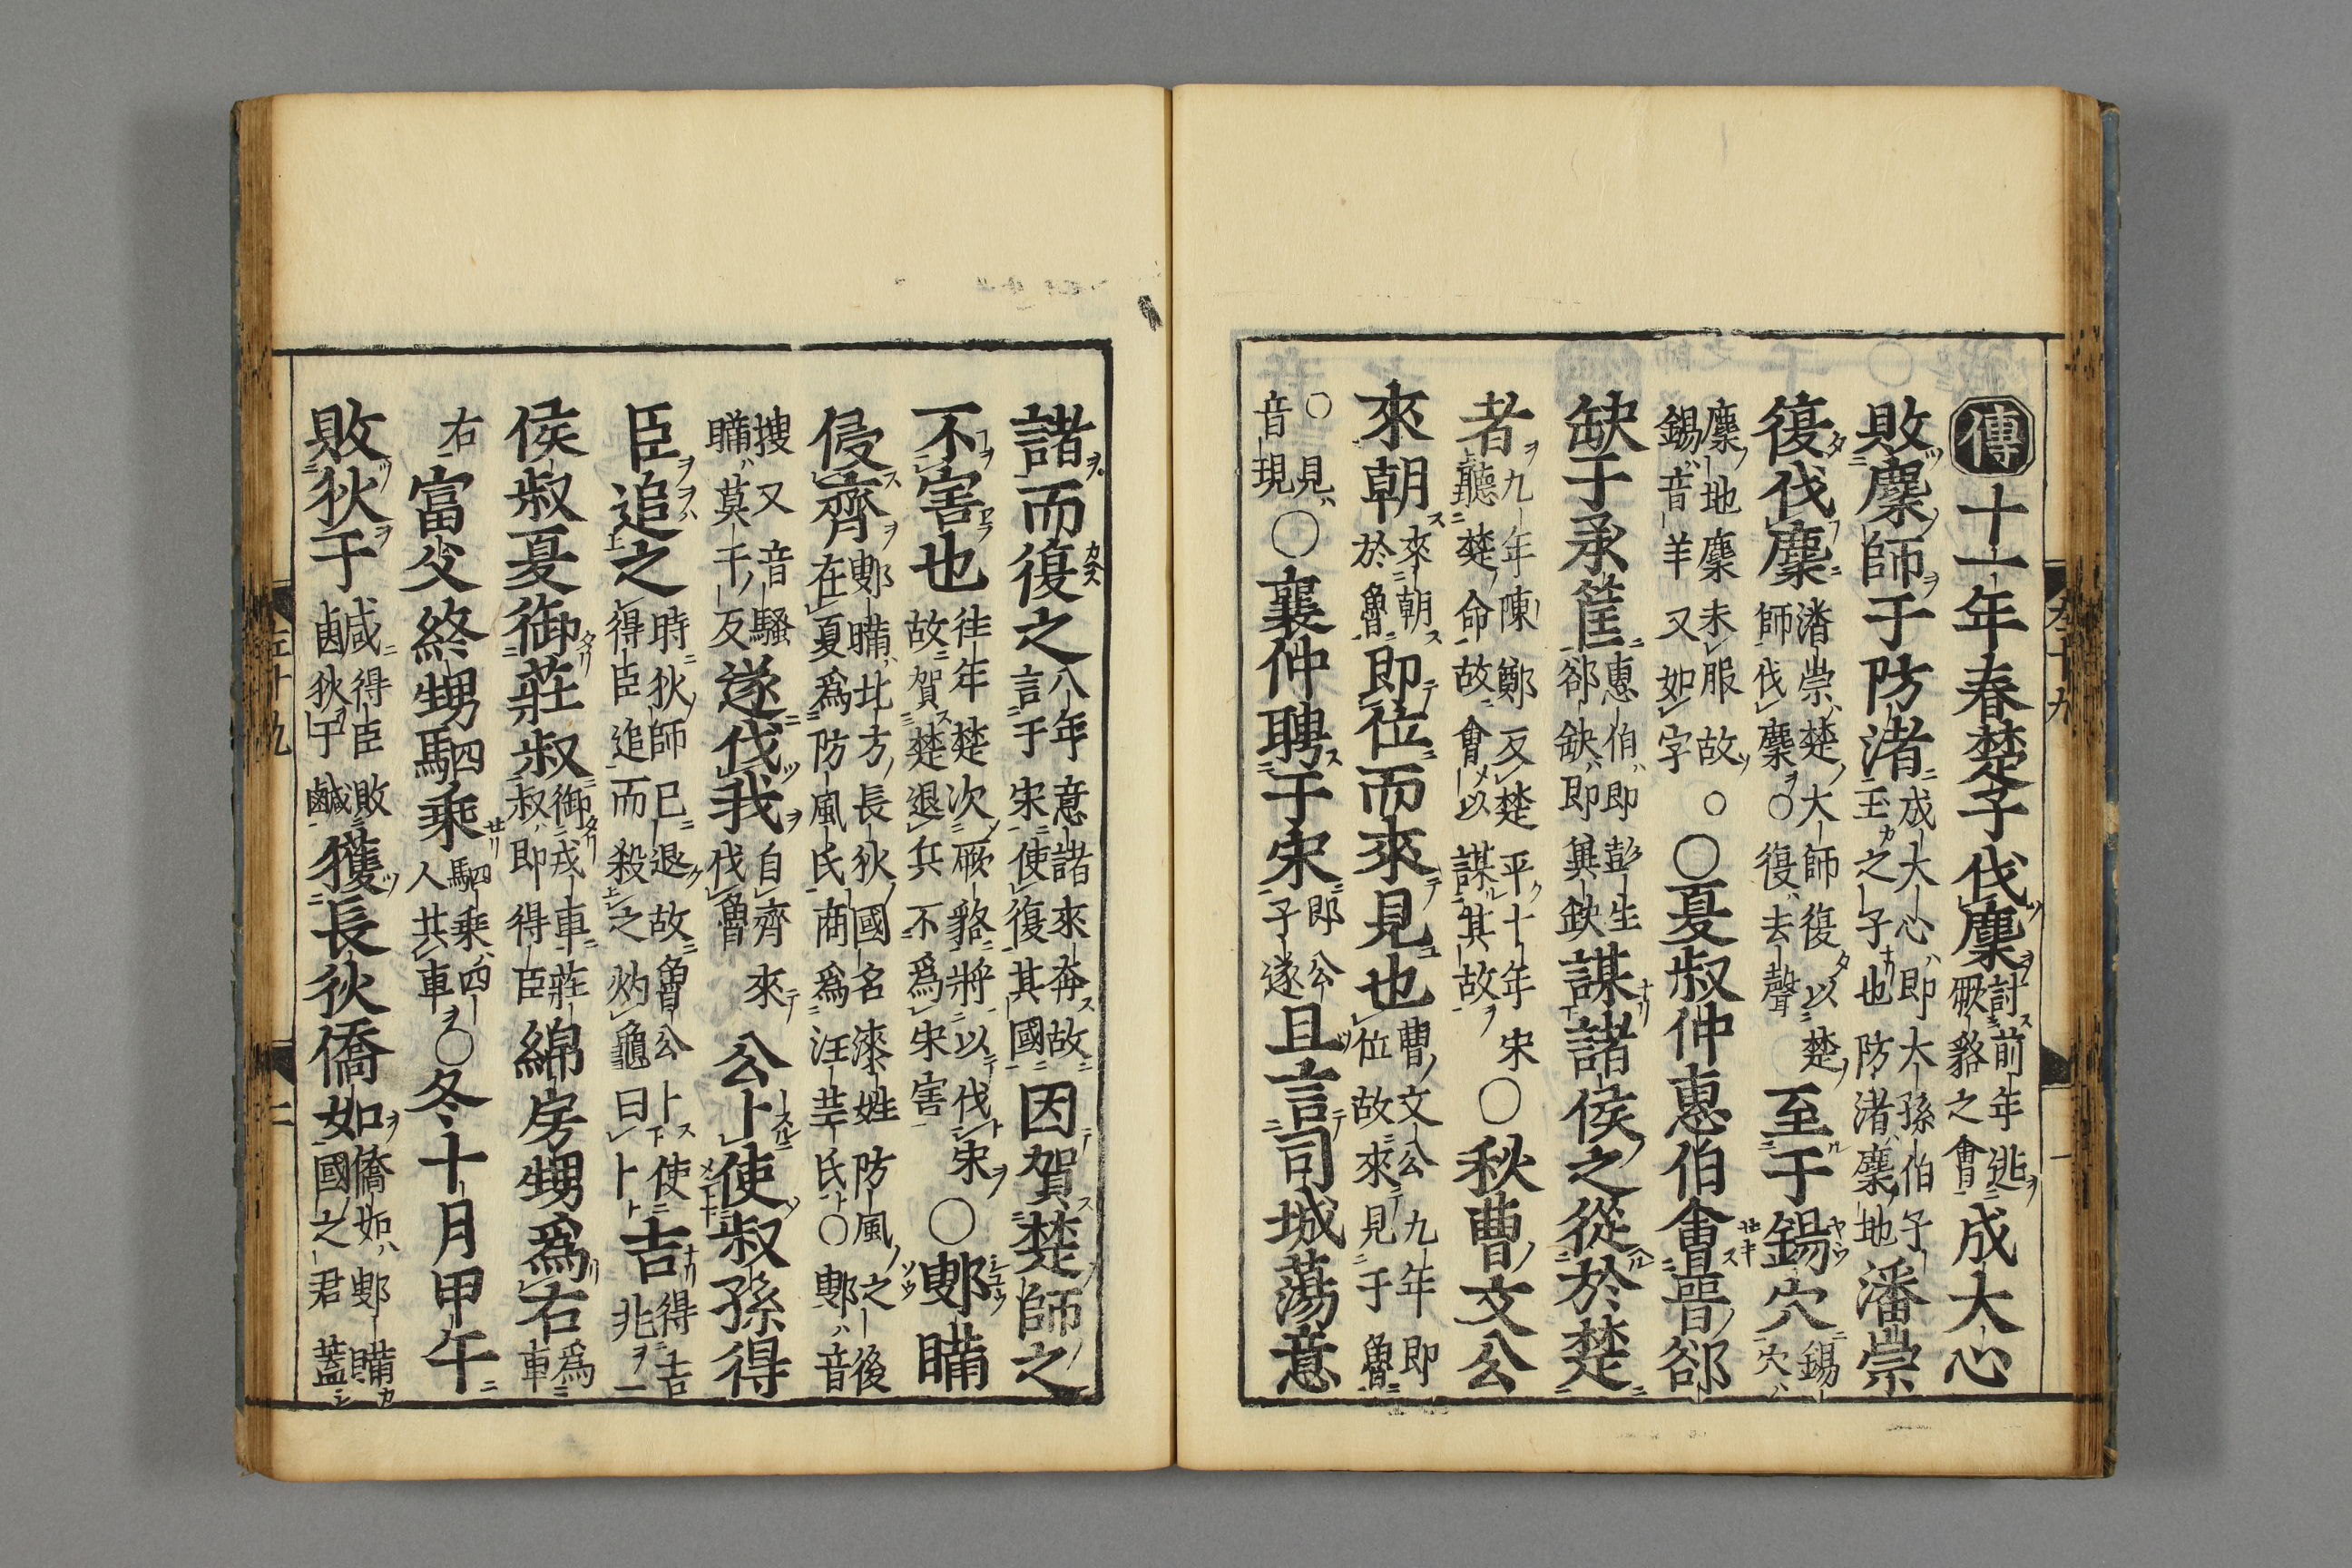 傳十一年春楚子伐麇討前年逃厥貉之會成大心
敗麇師于防渚成大心即大孫伯子玉之子也防渚麇地潘崇
復伐麇潘崇楚大師復以楚師伐麇○復去聲至于錫穴錫穴
麇地麇未服故○錫音羊又如字○夏叔仲惠伯會晉郤
缺于承筐惠伯即彭生郤缺即冀缺謀諸侯之從於楚
者九年陳鄭及楚平十年宋聽楚命故會以謀其故○秋曹文公
來朝來朝於魯即位而來見也曹文公九年即位故來見于魯
○見音現○襄仲聘于宋即公子遂且言司城蕩意
諸而復之八年意諸來奔故言于宋使復其國因賀楚師之
不害也往年楚次厥貉將以伐宋故賀楚退兵不爲宋害○鄋瞞
侵齊鄋瞞北方長狄國名漆姓防風之後在夏爲防風氏商爲汪芒氏○鄋音
搜又音騷瞞莫干反遂伐我自齊來伐魯公卜使叔孫得
臣追之時狄師已退故魯公卜使得臣追而殺之灼龜曰卜吉得吉兆一
侯叔夏御莊叔御戎車莊叔即得臣綿房甥爲右爲車
右富父終甥駟乘駟乘四人共車○冬十月甲午
敗狄于鹹得臣敗狄于鹹獲長狄僑如僑如鄋瞞國之君蓋